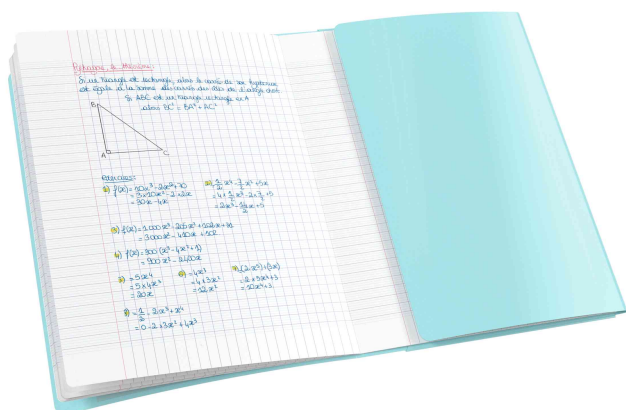 Pythagore, le théorème:
Si un triangle est rectangle, alors le carré de son hypoténuse
est égale à la somme des carrés des côtés de l'angle droit
Si ABC est un triangle rectangle en A
alors BC² = BA² + AC²
B
A
C
Exercices:
1) f(x) = 10x³ - 2x² + 70
= 3×10x² - 2×2x
= 30x - 4x
= 4×
3) f(x) = 1000x³ - 205x² + 102x +
= 3000x² - 410x + 102
4) f(x) = 300 (x³ - 4x² + 1)
= 900x² - 2400x
5) = 5x⁴
= 5×4x³
= 20x
6) = 4x³
= 4×3x²
= 12x²
7) (2x⁵) + (3x)
= 2×5x⁴ + 3
= 10x⁴ + 3
= 0 - 2×3x² + 4x³